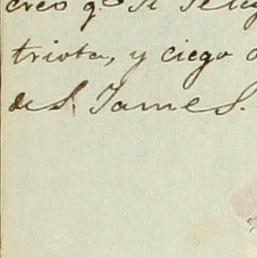 creo q.º Sr.
triota, y ciego
de S. James.